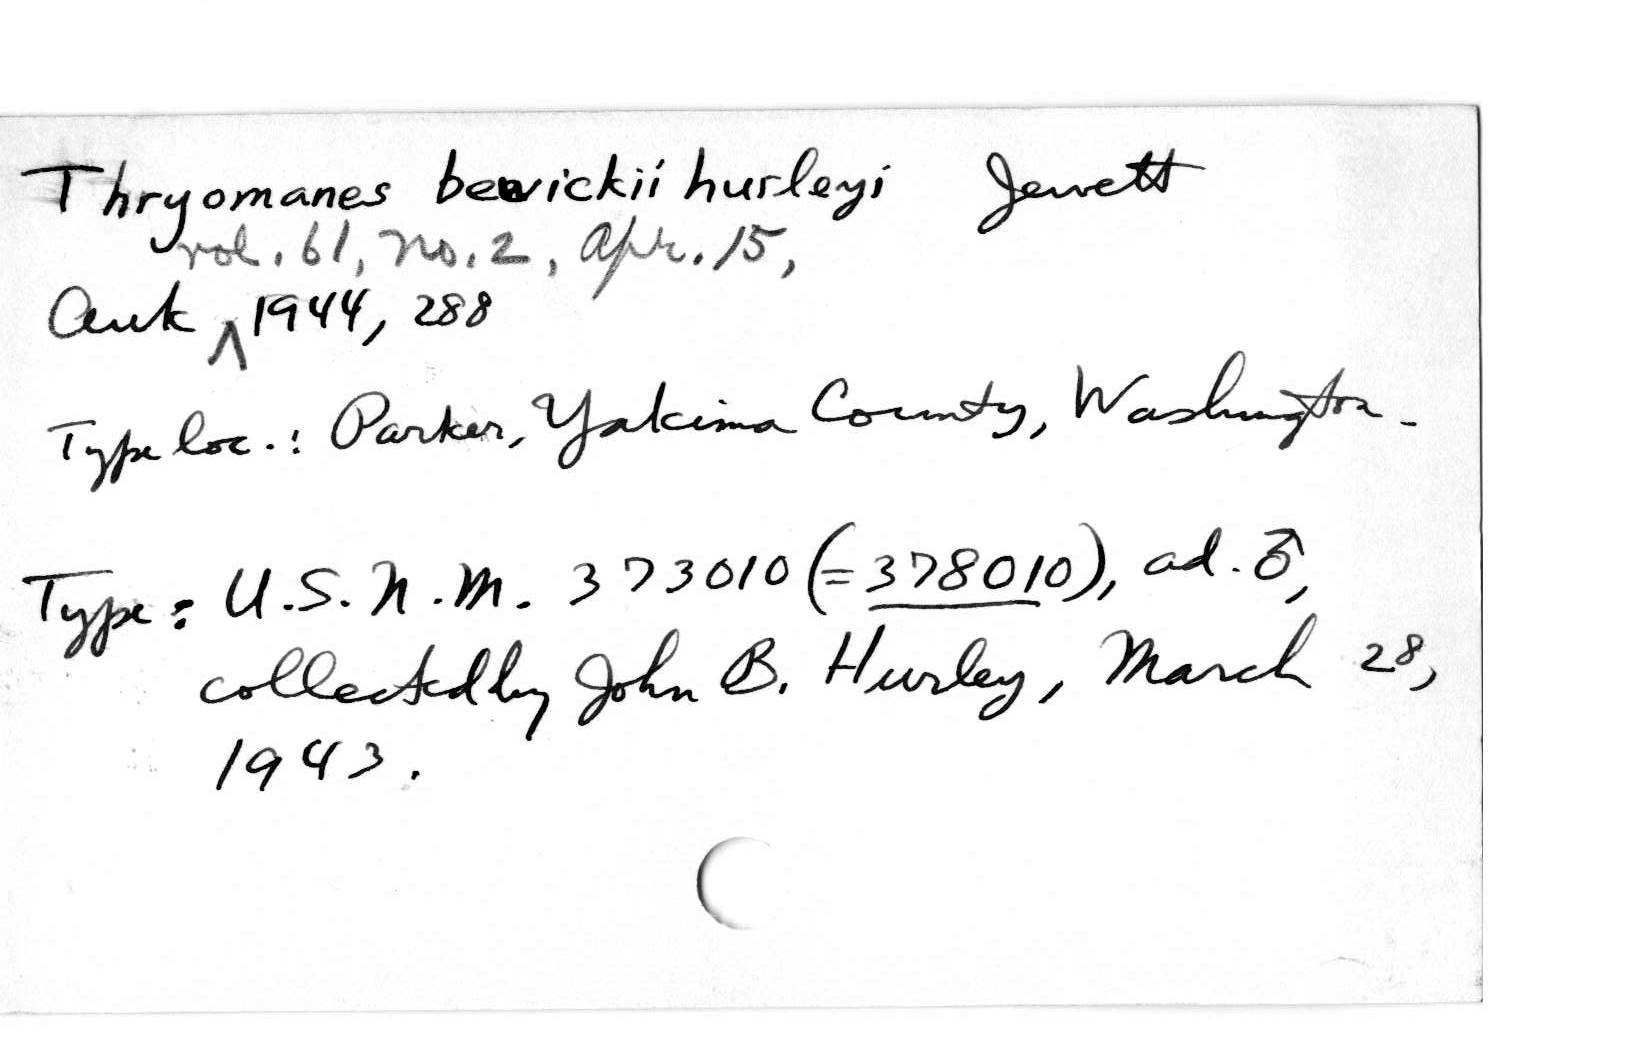 Thryomanes bewickii hurleyi Jewett
vol. 61, no. 2, Apr. 15,
Auk ^ 1944, 288
Type loc.: Parker, Yakima County, Washington.
Type: U.S.N.M. 373010 (=378010), ad. ♂,
collected by John B. Hurley, March 28,
1943.